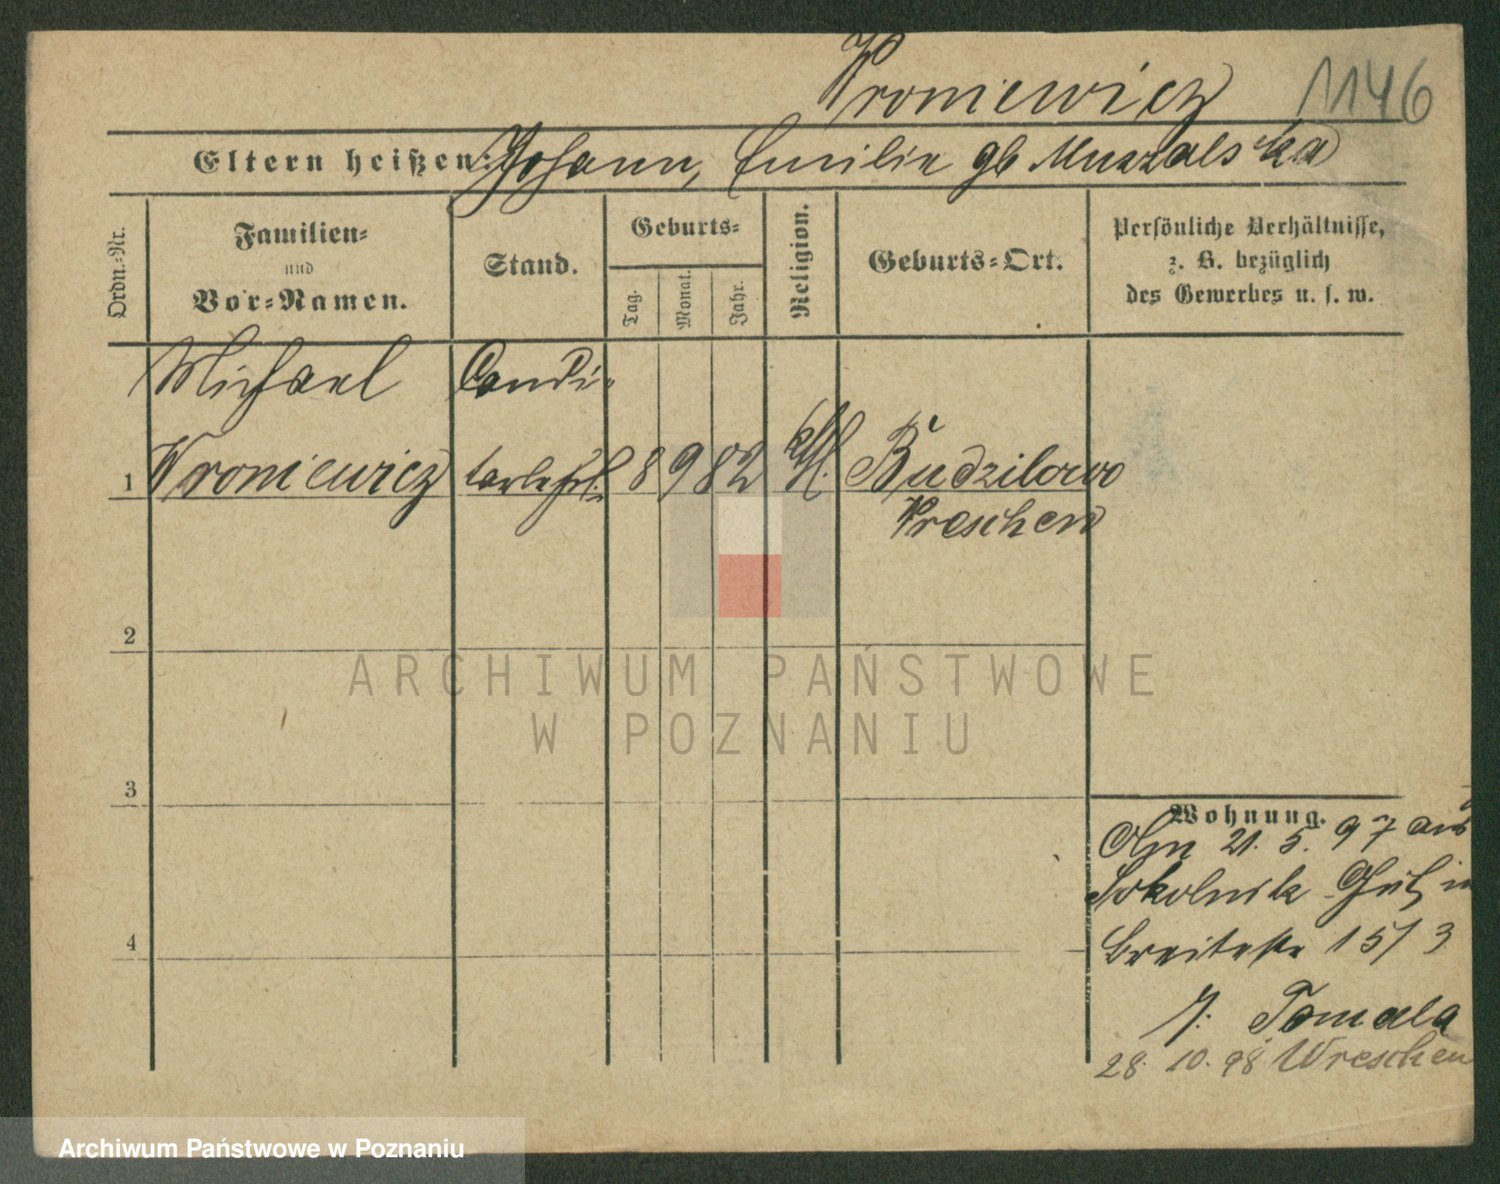 Wroniewicz 1146
Eltern heißen: Johann, Emilie gb Muszalska
Ordn.-Nr.
Familien-
und
Vor-Namen.
Stand.
Geburts-
Tag.
Monat.
Jahr.
Religion.
Geburts-Ort.
Persönliche Verhältnisse,
z. B. bezüglich
des Gewerbes u. s. w.
Michael Condi-
1 Wroniewicz torlehrl. 8 9 82 kth. Budzilowo
Wreschen
2
3
4
Wohnung.
Am 21. 5. 97 aus
Sokolnik Gut in
Breitestr 15/3
b. Tomala
28. 10. 98 Wreschen
ARCHIWUM PAŃSTWOWE
W POZNANIU
Archiwum Państwowe w Poznaniu